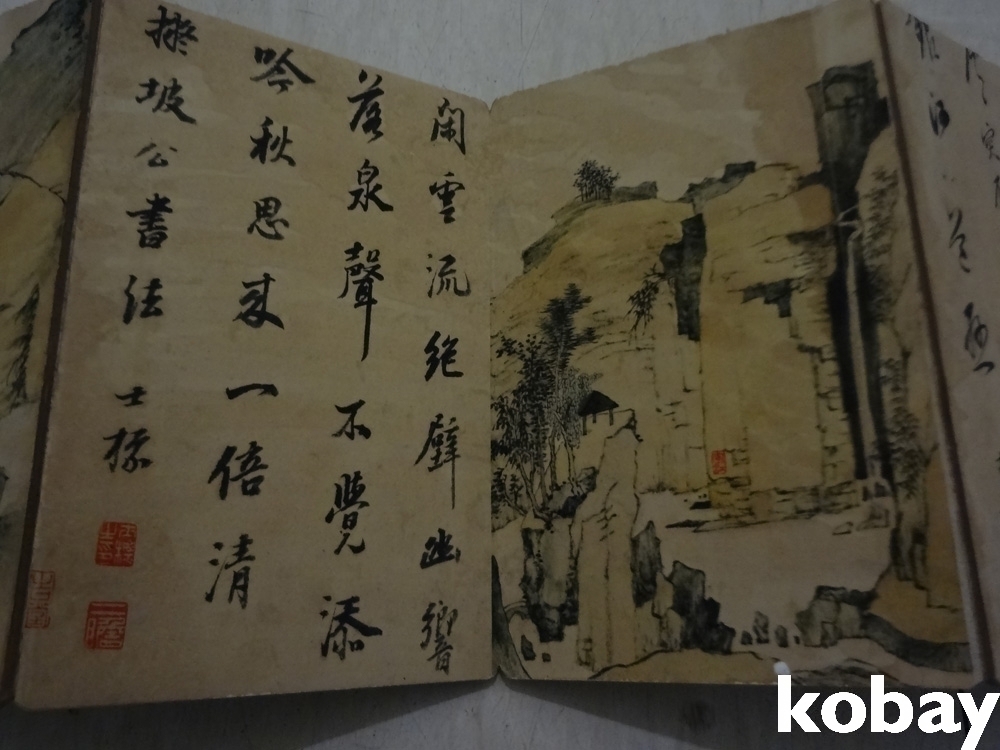 閑雲流絕壁幽響
落泉聲不覺添
吟秋思來一倍清
擬坡公書法 士標
kobay